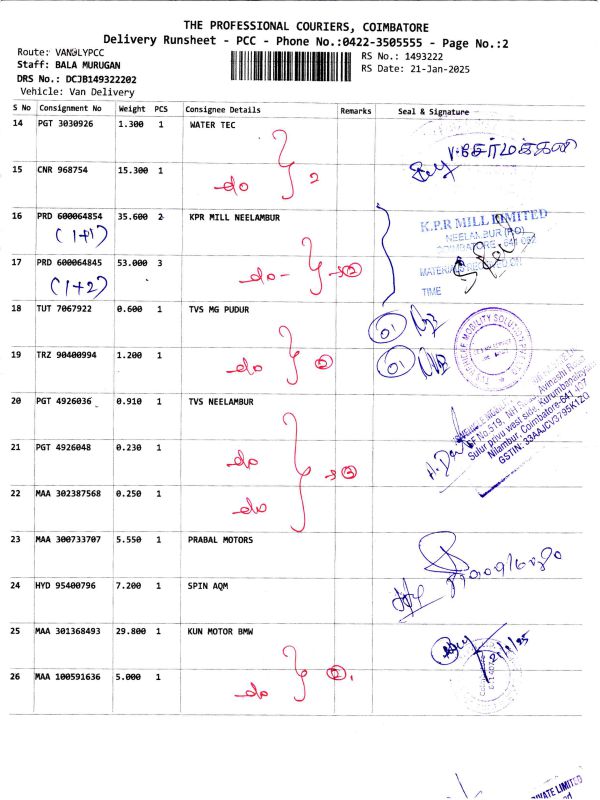 THE PROFESSIONAL COURIERS, COIMBATORE
Delivery Runsheet - PCC - Phone No.:0422-3505555 - Page No.:2
Route: VANDLYPCC
RS No.: 1493222
Staff: BALA MURUGAN
RS Date: 21-Jan-2025
DRS No.: DCJB149322202
Vehicle: Van Delivery
S No Consignment No Weight PCS Consignee Details Remarks Seal & Signature
14 PGT 3030926 1.300 1 WATER TEC
15 CNR 968754 15.300 1 do 2
16 PRD 600064854 35.600 2 KPR MILL NEELAMBUR
(1+1)
K.P.R MILL LIMITED
NEELAMBUR (PO)
COIMBATORE - 641 062
17 PRD 600064845 53.000 3 do 2
(1+2)
MATERIALS RECEIVED ON
TIME
18 TUT 7067922 0.600 1 TVS MG PUDUR 01
19 TRZ 90400994 1.200 1 do 2 01
20 PGT 4926036 0.910 1 TVS NEELAMBUR
21 PGT 4926048 0.230 1 do 3
SF No.519, NH Road, Avinashi Road
Sulur privu west side, Kurumbapalayam
Nilambur, Coimbatore-641 407
GSTIN: 33AAJCV3795K1ZO
22 MAA 302387568 0.250 1 do
23 MAA 300733707 5.550 1 PRABAL MOTORS
24 HYD 95400796 7.200 1 SPIN AQM
25 MAA 301368493 29.800 1 KUN MOTOR BMW
21/1/25
26 MAA 100591636 5.000 1 do 2
PRIVATE LIMITED